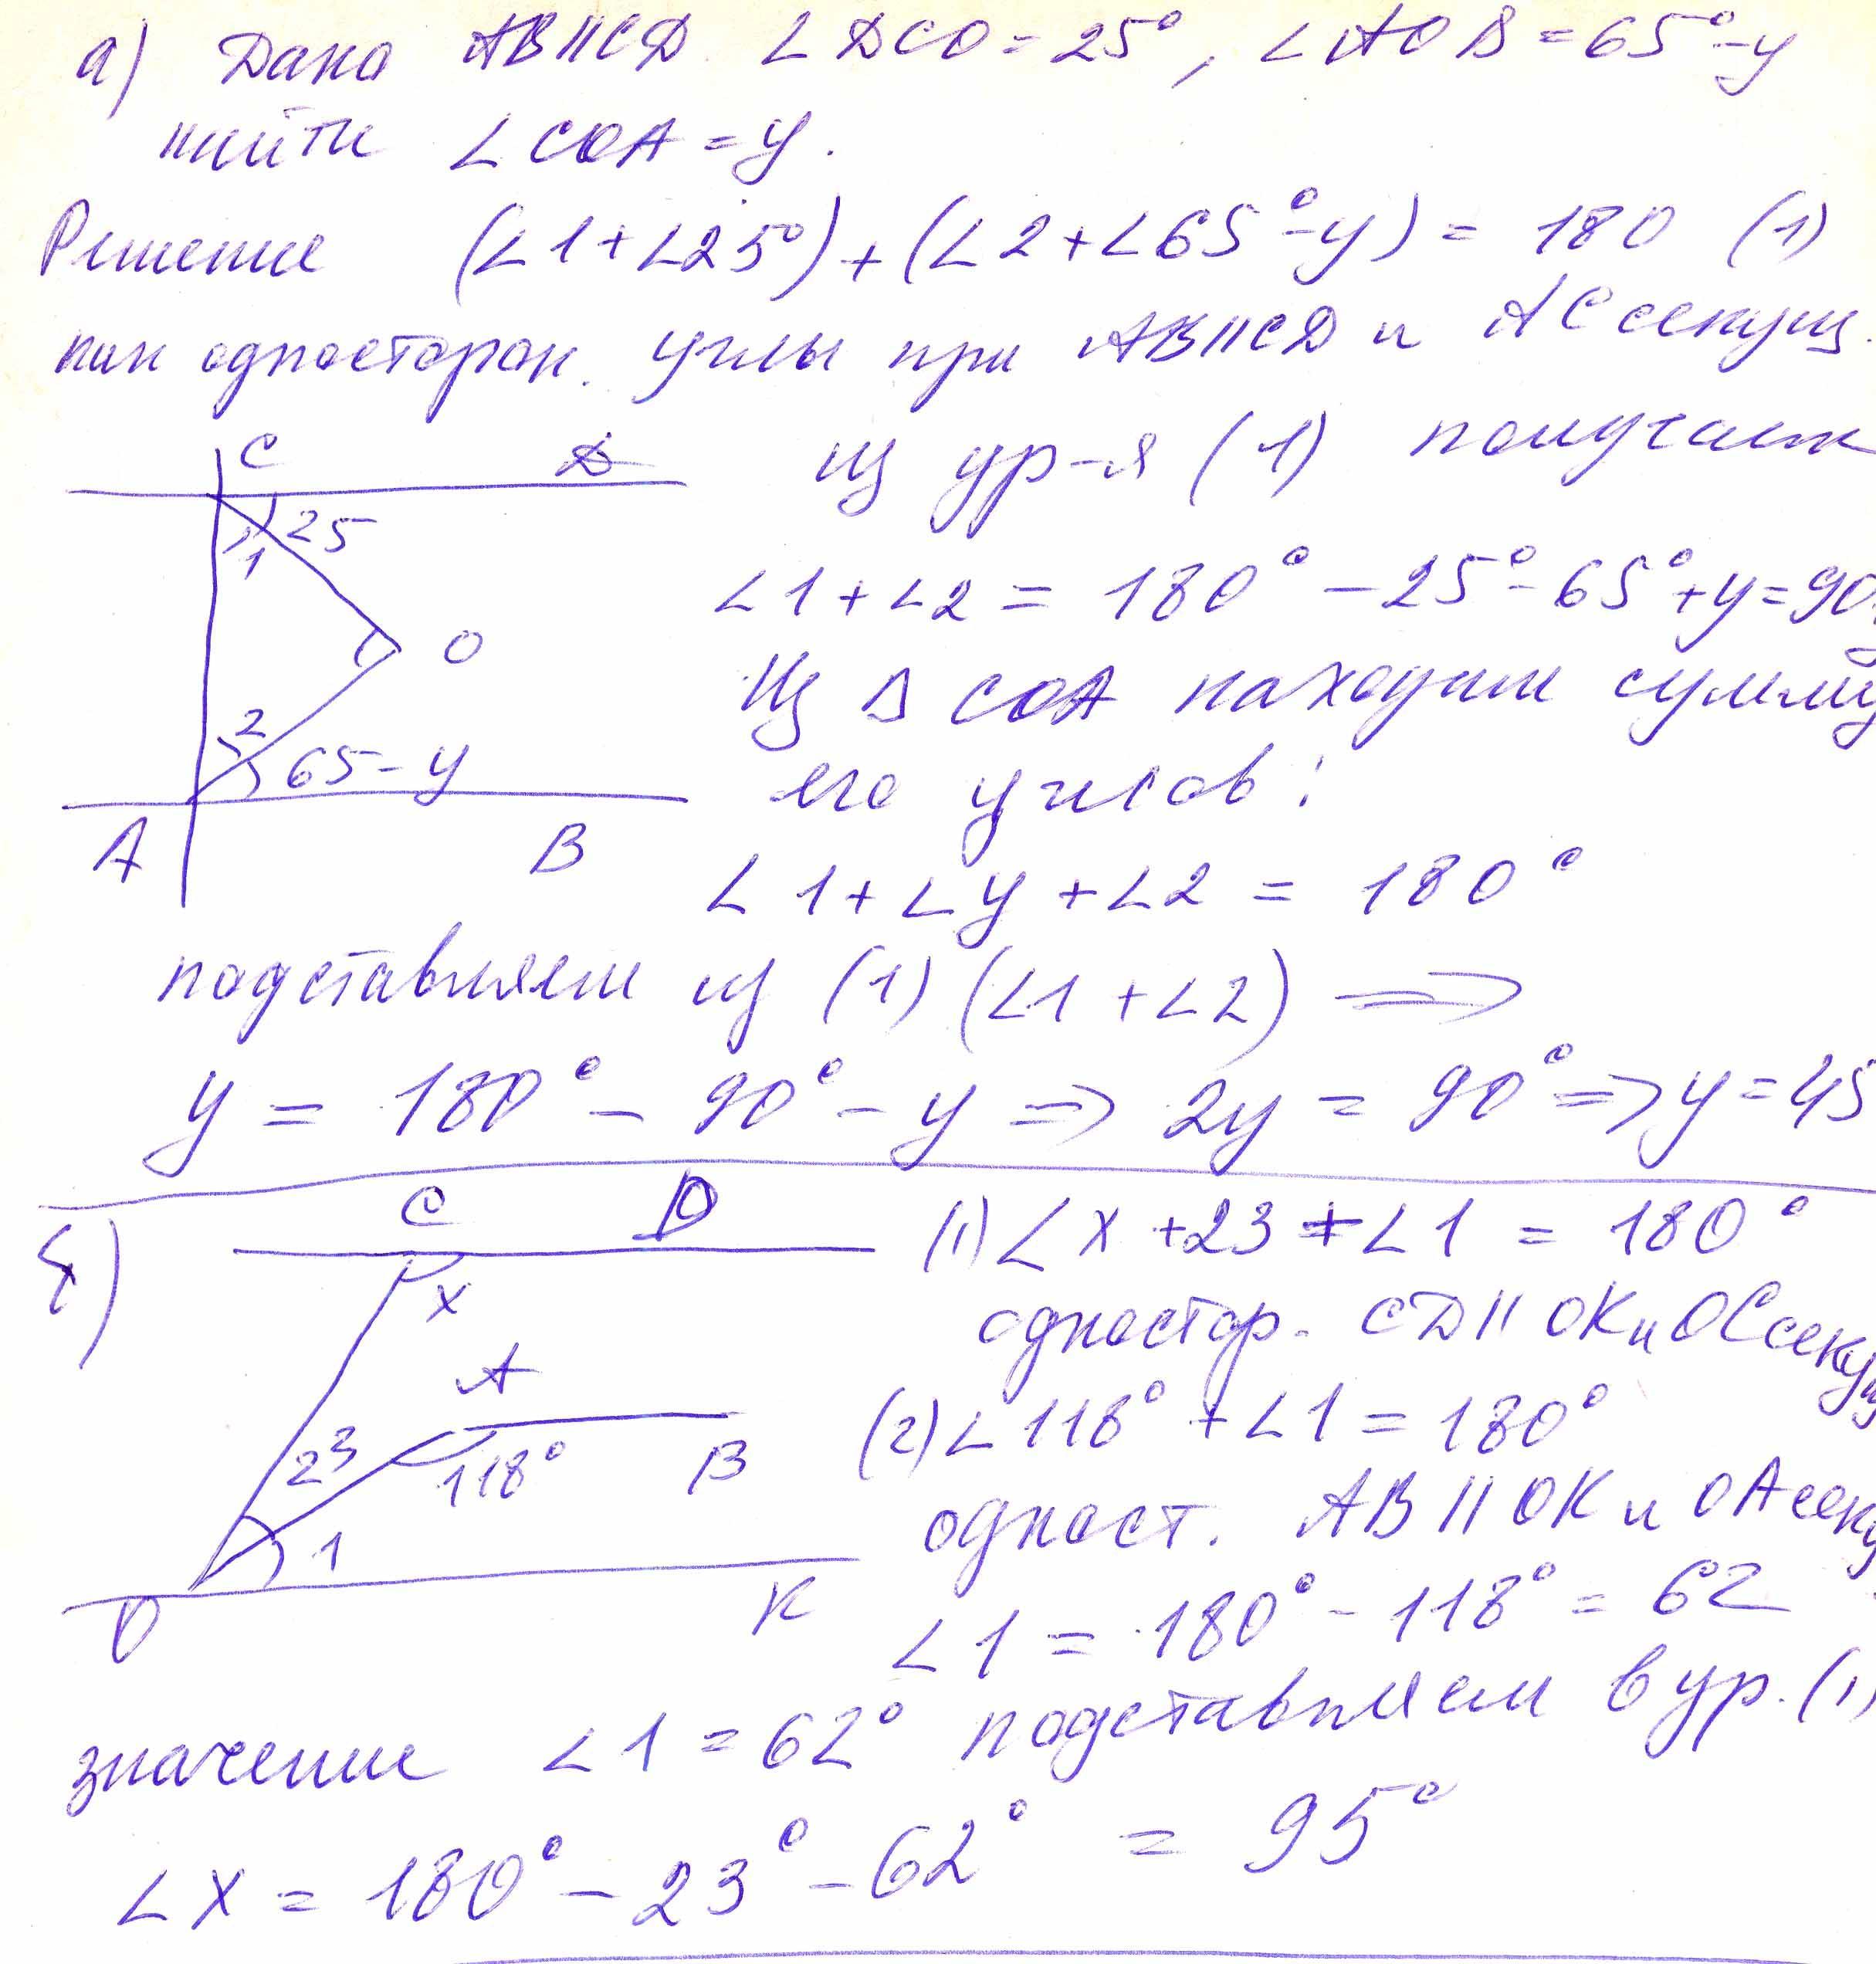 а) Дано AB||CD. ∠DCO = 25°, ∠AOB = 65° - y
найти ∠COA = y.
Решение (∠1+∠25°)+(∠2+∠65°-y) = 180 (1)
как односторон. углы при AB||CD и AC секущ.
C D
25
1
O
2
65-y
A B
из ур-я (1) получаем
∠1+∠2 = 180° - 25° - 65° + y = 90
Из Δ COA находим сумму
его углов:
∠1+∠y+∠2 = 180°
подставляем из (1) (∠1+∠2) ⇒
y = 180° - 90° - y ⇒ 2y = 90° ⇒ y = 45
б)
C D
x
A
23
118°
B
1
O K
(1) ∠x+23+∠1 = 180°
одностор. CD|| OK и OC секу
(2) ∠118° + ∠1 = 180°
одност. AB || OK и OA секу
∠1 = 180° - 118° = 62
значение ∠1 = 62° подставляем в ур. (1)
∠x = 180° - 23° - 62° = 95°